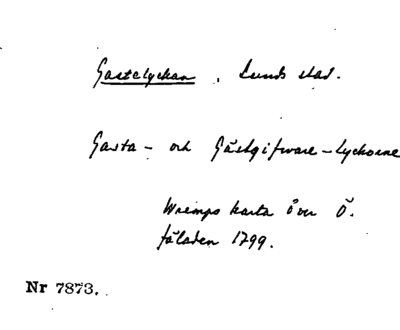 Gastelyckan, Lunds stad.
Gasta- och Gästgifware-Lyckorne
Wremps karta över Ö.
fäladen 1799.
Nr 7873.